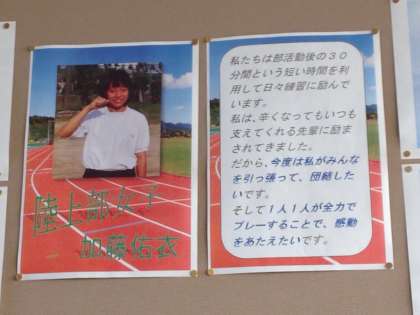 陸上部女子
加藤佑衣
私たちは部活動後の30
分間という短い時間を利
用して日々練習に励んで
います。
私は、辛くなってもいつも
支えてくれる先輩に励ま
されてきました。
だから、今度は私がみんな
を引っ張って、団結した
いです。
そして1人1人が全力で
プレーすることで、感動
をあたえたいです。